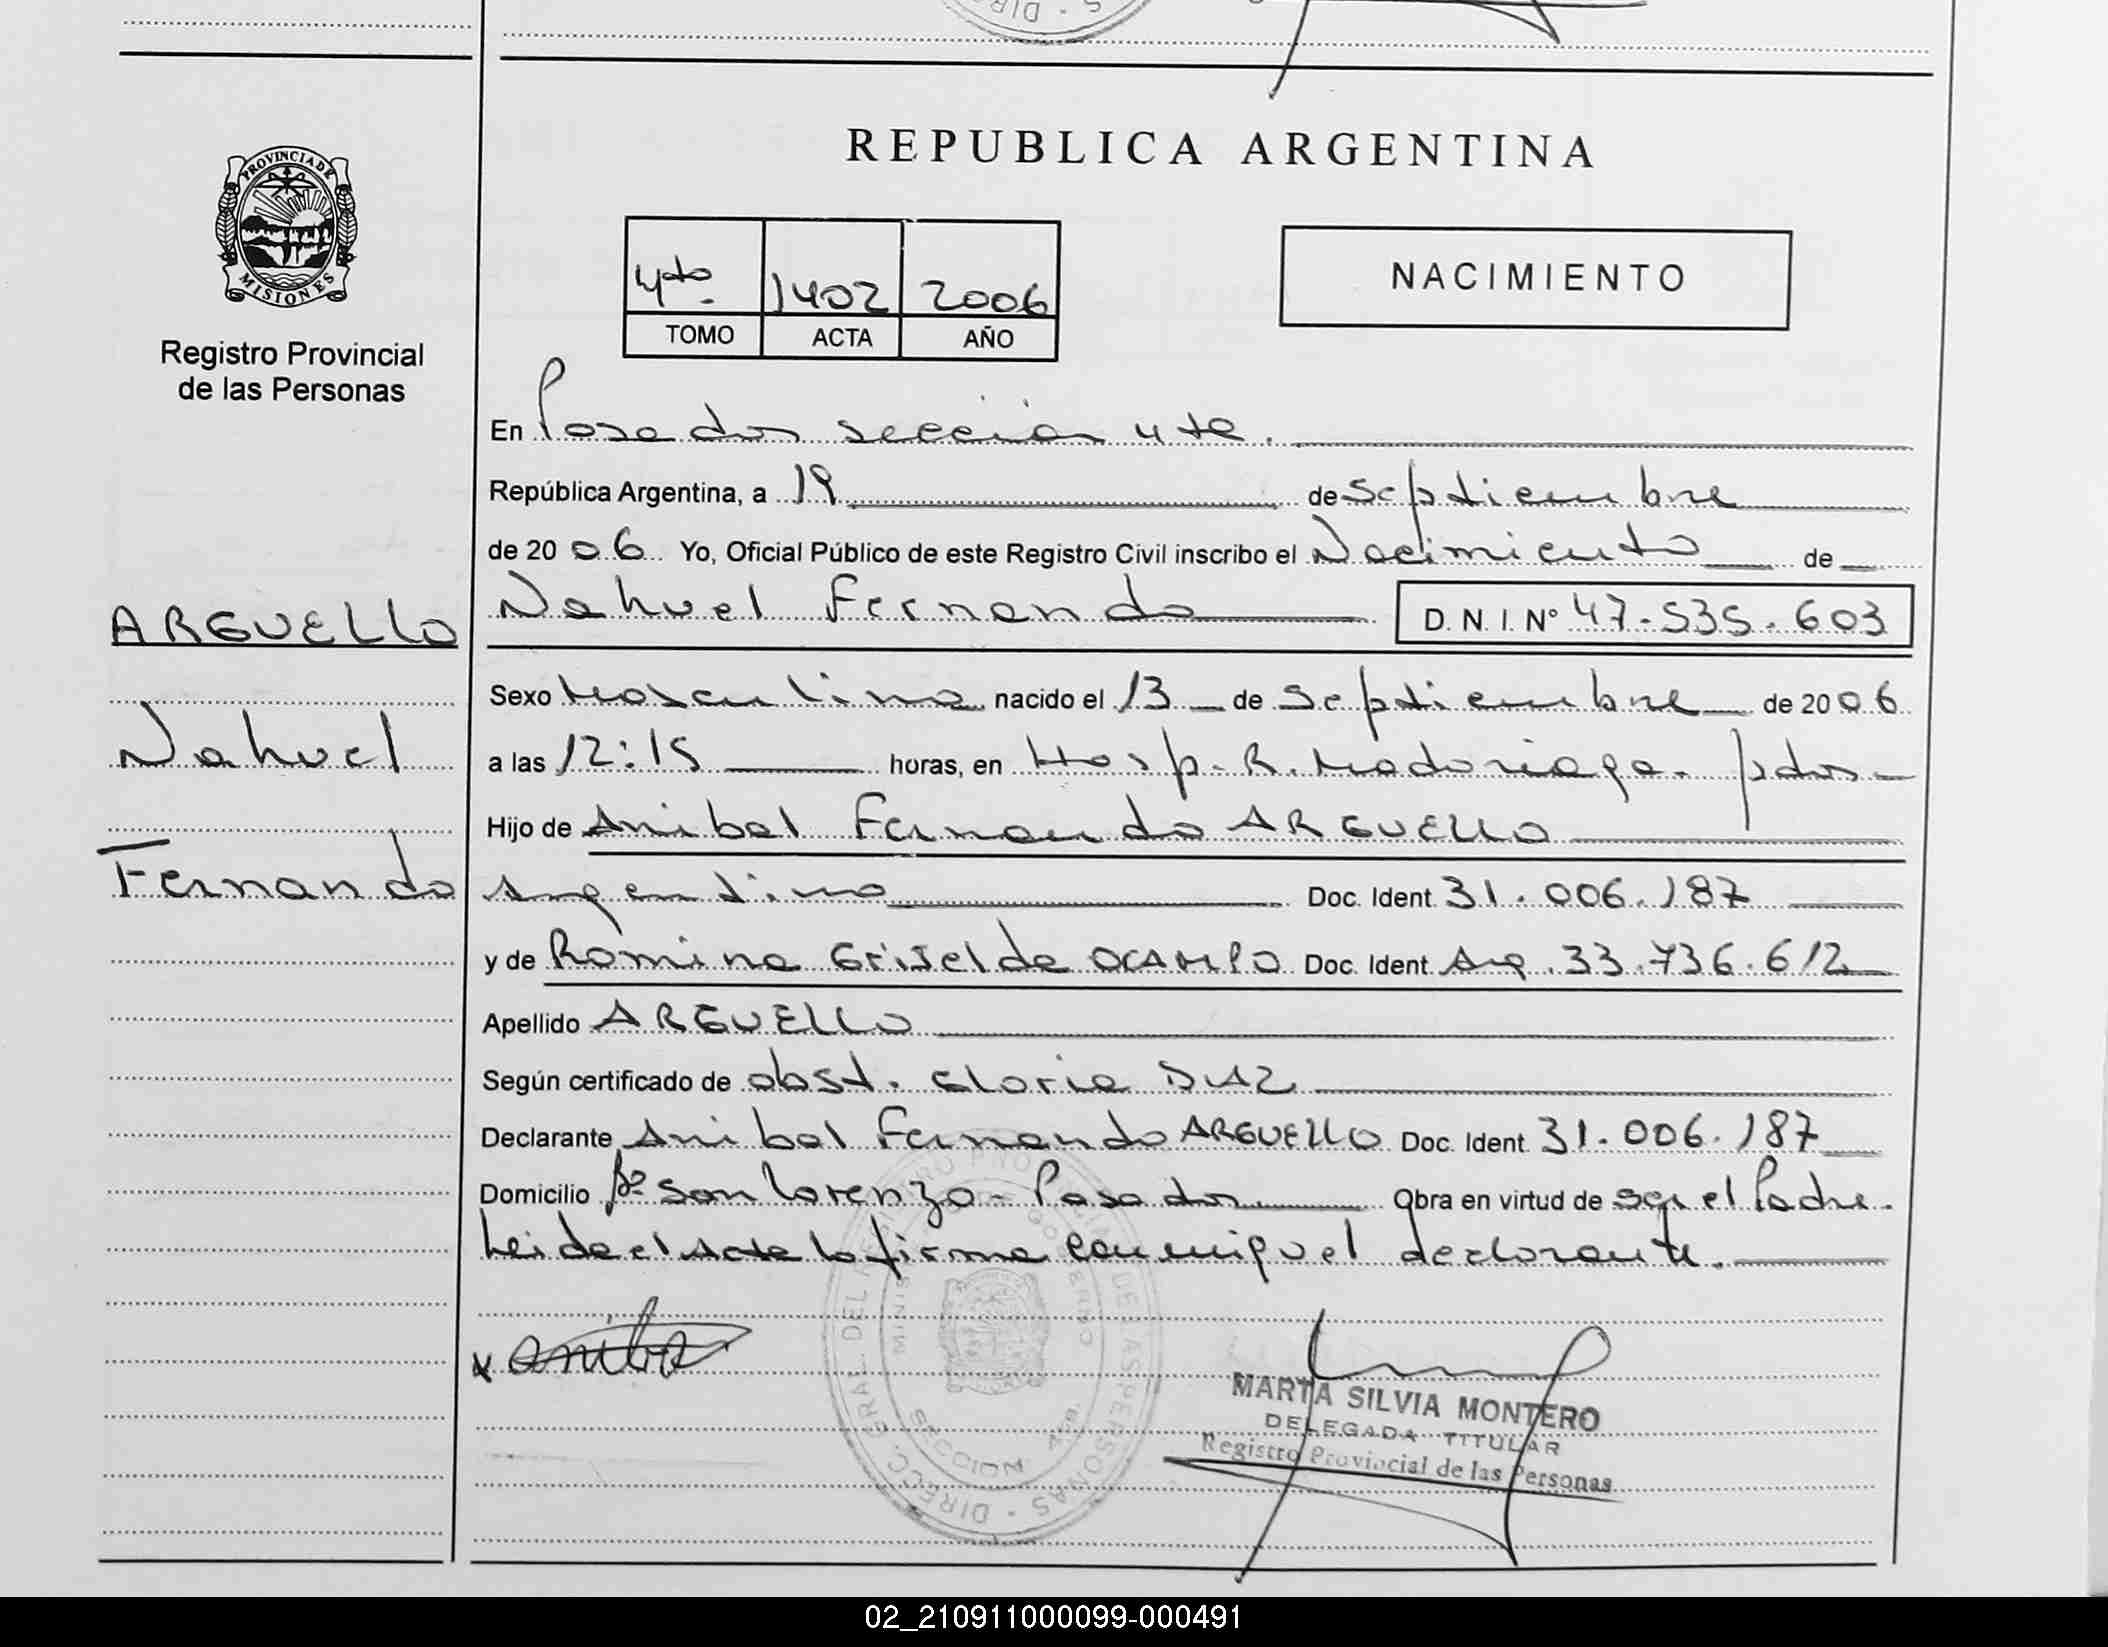 REPUBLICA ARGENTINA
PROVINCIA DE
MISIONES
Registro Provincial
de las Personas
4to. 1402 2006
TOMO ACTA AÑO
NACIMIENTO
ARGUELLO
Nahuel
Fernando
En Posadas sección 4ta.
República Argentina, a 19 de Septiembre
de 2006 Yo, Oficial Público de este Registro Civil inscribo el Nacimiento de
Nahuel Fernando D. N. I. Nº 47.535.603
Sexo Masculino nacido el 13 de Septiembre de 2006
a las 12:15 horas, en Hosp. R. Madariaga. pdas
Hijo de Anibal Fernando ARGUELLO
Argentino Doc. Ident. 31.006.187
y de Romina Griselda OCAMPO Doc. Ident. Arg. 33.736.612
Apellido ARGUELLO
Según certificado de obst. Gloria DIAZ
Declarante Anibal Fernando ARGUELLO Doc. Ident. 31.006.187
Domicilio Bº San Lorenzo - Posadas Obra en virtud de ser el Padre.
Leida el Acta la firma conmigo el declarante.
x
MARTA SILVIA MONTERO
DELEGADA TITULAR
Registro Provincial de las Personas
DIRECC. GRAL. DEL REGISTRO PROVINCIAL DE LAS PERSONAS
SECCION 4ta.
02_210911000099-000491